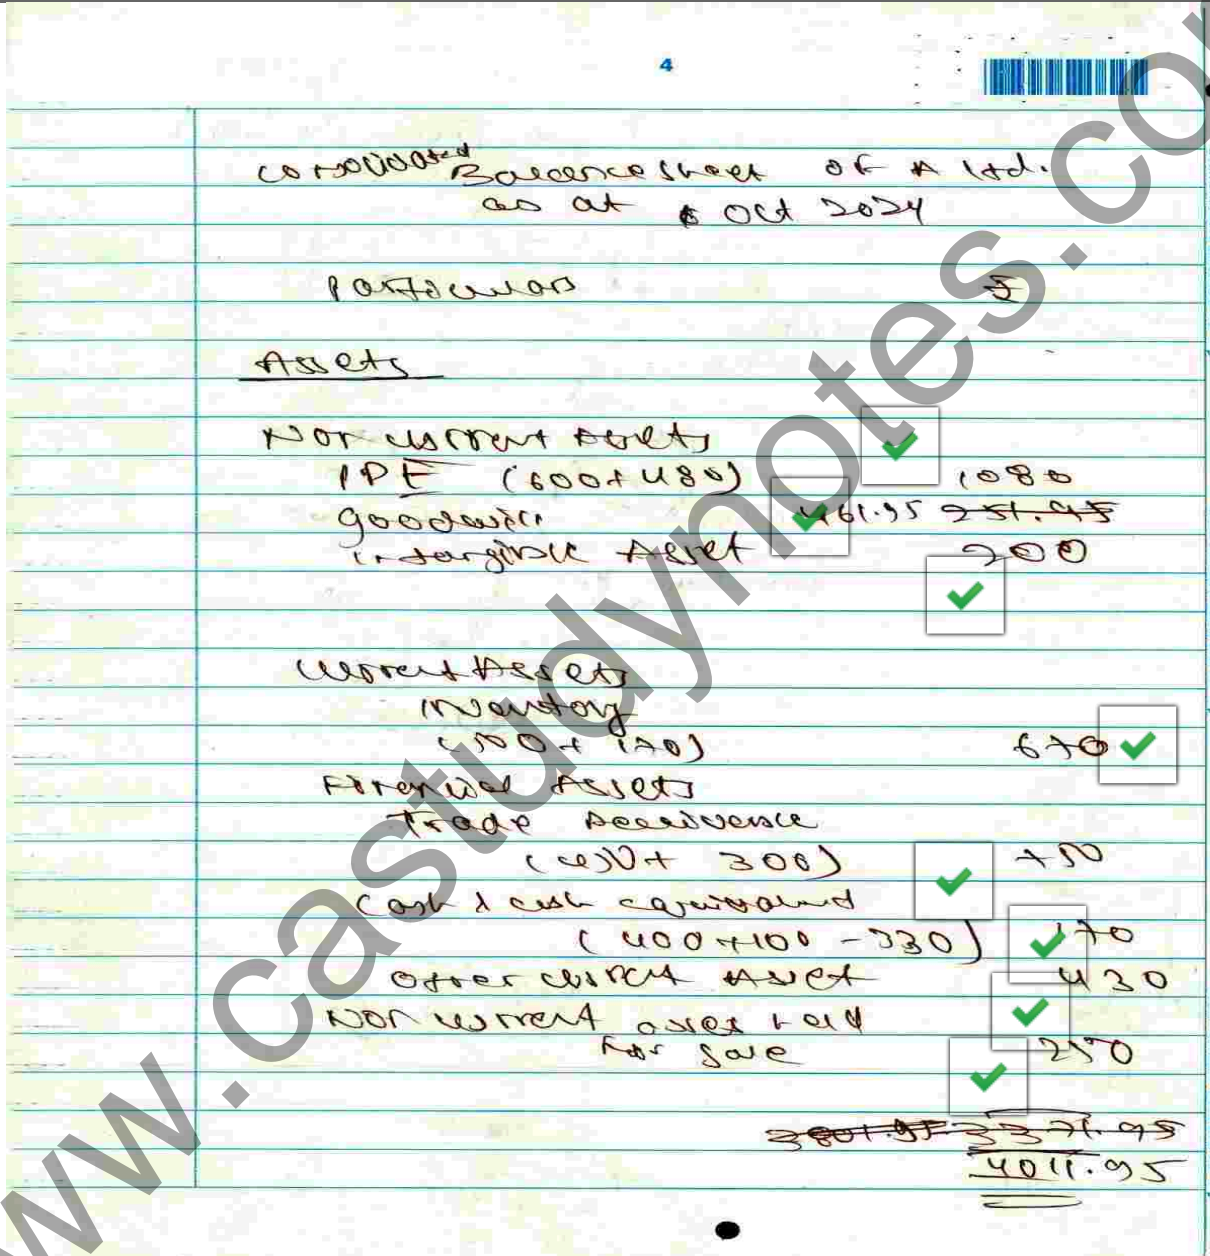 4
Consolidated Balance sheet of A ltd.
as at Oct 2024
Particulars ₹
Assets
Non current Assets
PPE (600+480) 1080
goodwill 461.95 251.95
intangible Asset 200
Current Assets
inventory
(500+170) 670
Financial Assets
Trade Receivable
(450+ 300) 750
Cash & cash equivalent
(400+100-330) 170
Other current Asset 430
Non current asset held
for sale 250
3801.95 3371.95
4011.95
www.castudynotes.co